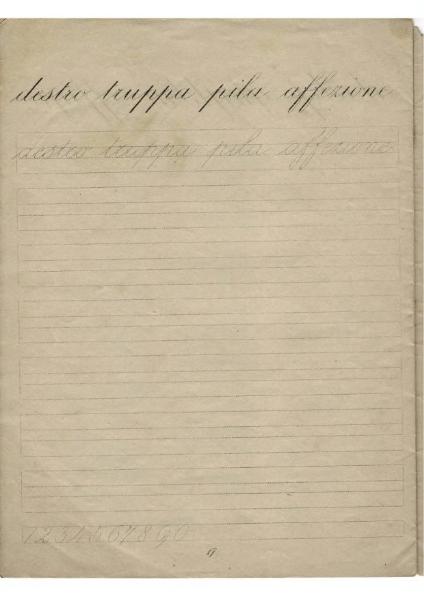 destro truppa pila affezione
destro truppa pila affezione
1 2 3 4 5 6 7 8 9 0